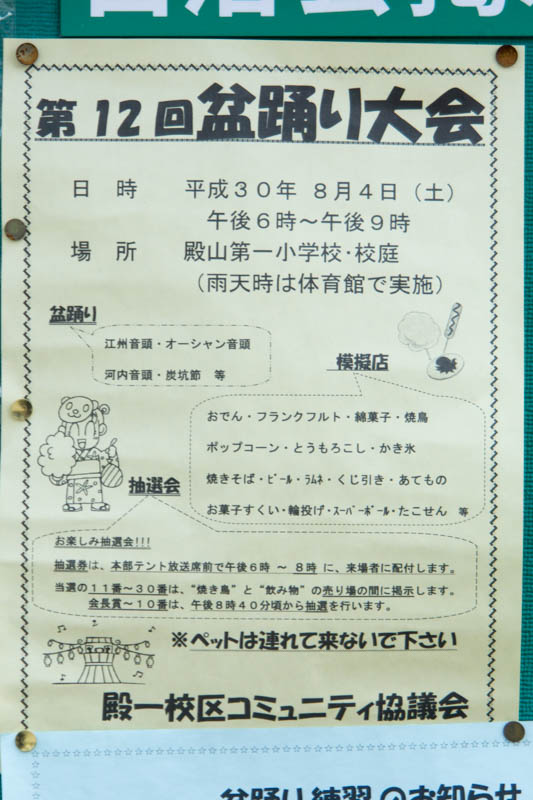 第12回盆踊り大会
日 時 平成30年 8月4日（土）
午後6時～午後9時
場 所 殿山第一小学校・校庭
（雨天時は体育館で実施）
盆踊り
江州音頭・オーシャン音頭
河内音頭・炭坑節 等
模擬店
おでん・フランクフルト・綿菓子・焼鳥
ポップコーン・とうもろこし・かき氷
焼きそば・ﾋﾞｰﾙ・ﾗﾑﾈ・くじ引き・あてもの
お菓子すくい・輪投げ・ｽｰﾊﾟｰﾎﾞｰﾙ・たこせん 等
抽選会
お楽しみ抽選会!!!
抽選券は、本部テント放送席前で午後6時 ～ 8時 に、来場者に配付します。
当選の 11番～30番は、“焼き鳥” と “飲み物” の売り場の間に掲示します。
会長賞～10番は、午後8時40分頃から抽選を行います。
※ペットは連れて来ないで下さい
殿一校区コミュニティ協議会
盆踊り練習のお知らせ